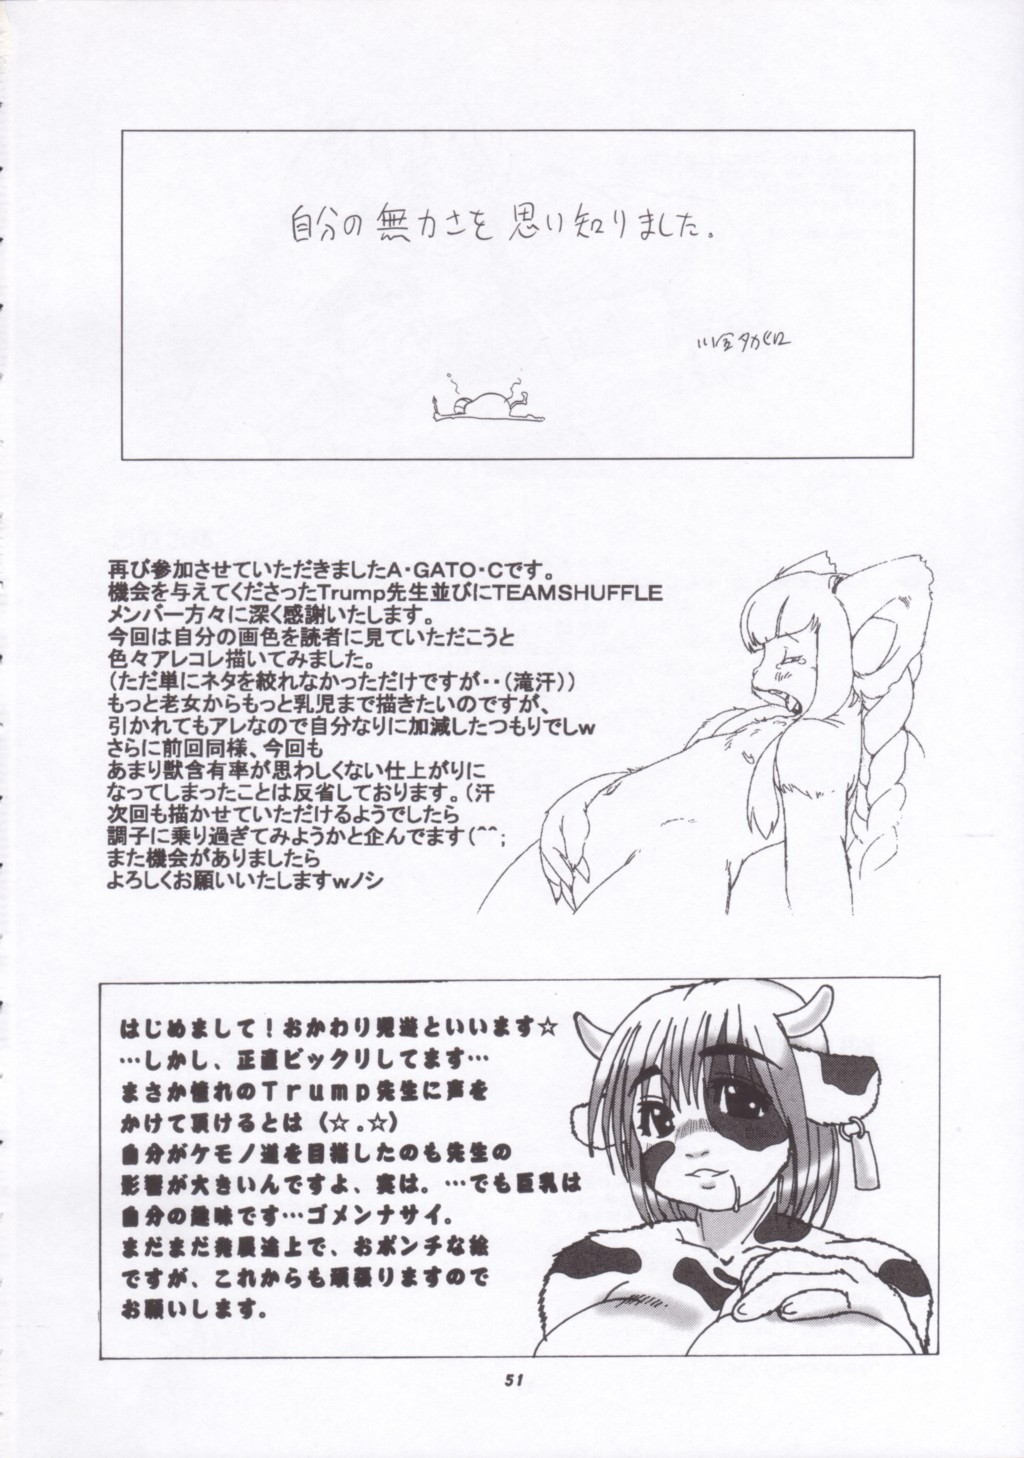 自分の無力さを思い知りました。
タカヒロ
再び参加させていただきましたA・GATO・Cです。
機会を与えてくださったTrump先生並びにTEAMSHUFFLE
メンバー方々に深く感謝いたします。
今回は自分の画色を読者に見ていただこうと
色々アレコレ描いてみました。
(ただ単にネタを絞れなかっただけですが・・(滝汗))
もっと老女からもっと乳児まで描きたいのですが、
引かれてもアレなので自分なりに加減したつもりでしw
さらに前回同様、今回も
あまり獣含有率が思わしくない仕上がりに
なってしまったことは反省しております。(汗
次回も描かせていただけるようでしたら
調子に乗り過ぎてみようかと企んでます(^^;
また機会がありましたら
よろしくお願いいたしますwノシ
はじめまして!おかわり児遊といいます☆
…しかし、正直ビックリしてます…
まさか憧れのTrump先生に声を
かけて頂けるとは(☆.☆)
自分がケモノ道を目指したのも先生の
影響が大きいんですよ、実は。…でも巨乳は
自分の趣味です…ゴメンナサイ。
まだまだ発展途上で、おポンチな絵
ですが、これからも頑張りますので
お願いします。
51